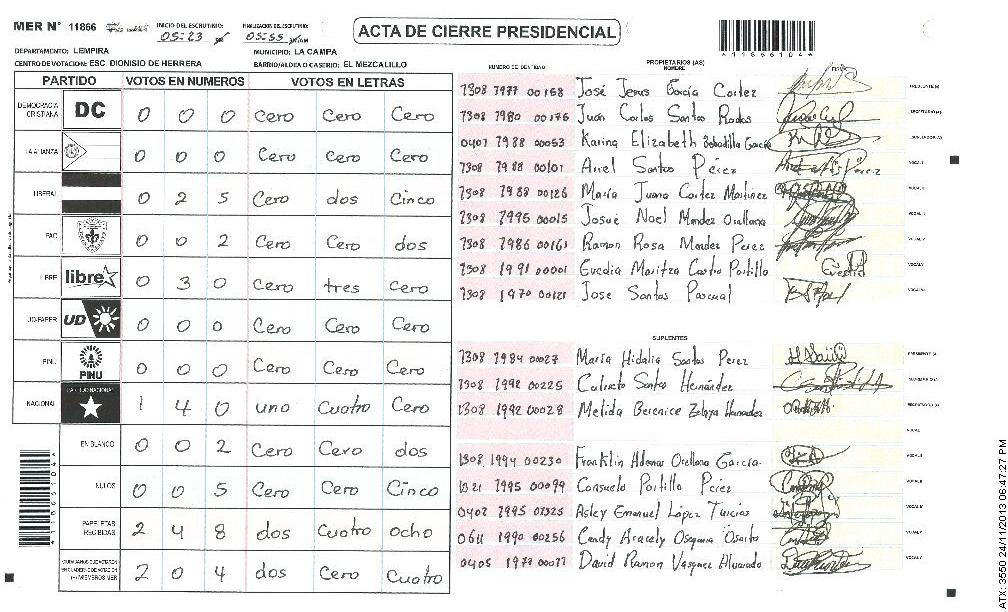 MER N° 11866
INICIO DEL ESCRUTINIO: 05:23
FINALIZACION DEL ESCRUTINIO: 05:55
ACTA DE CIERRE PRESIDENCIAL
A11866104A
DEPARTAMENTO: LEMPIRA
MUNICIPIO: LA CAMPA
CENTRO DE VOTACION: ESC. DIONISIO DE HERRERA
BARRIO/ALDEA O CASERIO: EL MEZCALILLO
PARTIDO VOTOS EN NUMEROS VOTOS EN LETRAS
DEMOCRACIA CRISTIANA DC 0 0 0 Cero Cero Cero
LA ALIANZA 0 0 0 Cero Cero Cero
LIBERAL 0 2 5 Cero dos Cinco
PAC 0 0 2 Cero Cero dos
LIBRE libre 0 3 0 Cero tres Cero
UD-FAPER UD 0 0 0 Cero Cero Cero
PINU PINU 0 0 0 Cero Cero Cero
NACIONAL PARTIDO NACIONAL 1 4 0 uno Cuatro Cero
EN BLANCO 0 0 2 Cero Cero dos
NULOS 0 0 5 Cero Cero Cinco
PAPELETAS RECIBIDAS 2 4 8 dos Cuatro ocho
CIUDADANOS QUE VOTARON EN CUADERNO DE VOTACION (+) MIEMBROS MER 2 0 4 dos Cero Cuatro
PROPIETARIOS (AS)
NUMERO DE IDENTIDAD NOMBRE
1308 1977 00158 José Jesus García Cortez
1308 1980 00176 Juan Carlos Santos Rodas
0401 1988 00053 Karina Elizabeth Bobadilla García
1308 1988 00101 Ariel Santos Pérez VOCAL I
1308 1988 00126 María Juana Cortez Martinez VOCAL II
1308 1995 00015 Josué Noel Mendez Orellana VOCAL III
1308 1986 00161 Ramon Rosa Mendez Perez VOCAL IV
1308 1991 00001 Eucdia Maritza Castro Portillo VOCAL V
1308 1970 00121 Jose Santos Pascual
SUPLENTES
1308 1984 00027 María Hidalia Santos Perez
1308 1992 00225 Calixto Santos Hernández
1308 1992 00028 Melida Berenice Zelaya Hernandez
VOCAL I
1308 1994 00230 Franklin Adonay Orellana García VOCAL II
1321 1995 00099 Consuelo Portillo Pérez VOCAL III
0402 1995 Asley Emanuel López Turcios VOCAL IV
0611 1990 00256 Cendy Aracely Oseguera Osorto VOCAL V
0405 1979 00077 David Ramon Vasquez Alvarado
A11866104A
ATX: 3550 24/11/2013 06:47:27 PM